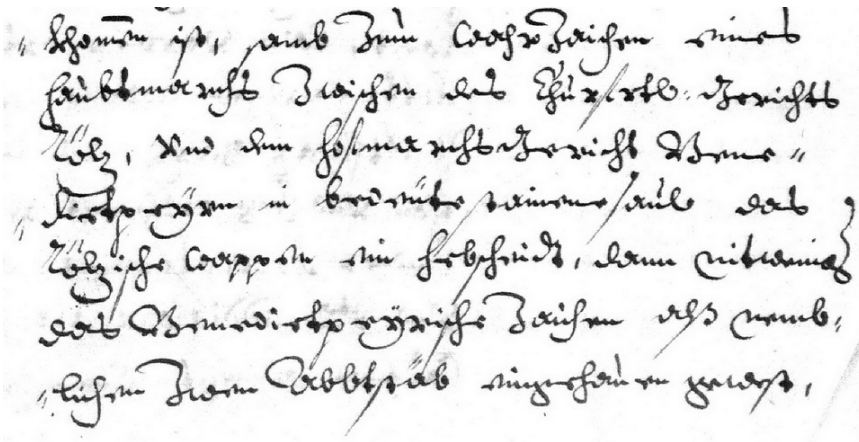 khomen ist, samb zum wahrzaichen eines
haubtmarchs zwischen des Churfrtl: Gerichts
Tölz, und dem hofmarchsgericht Bene-
dictpeyrn in bedeute stainene saul das
Tölzische Wappen ein hebscheidt, dann nitweniger
das Benedictpeyrische zaichen alß nemb-
lichen zwen Abbtstäb eingehauen gewest,